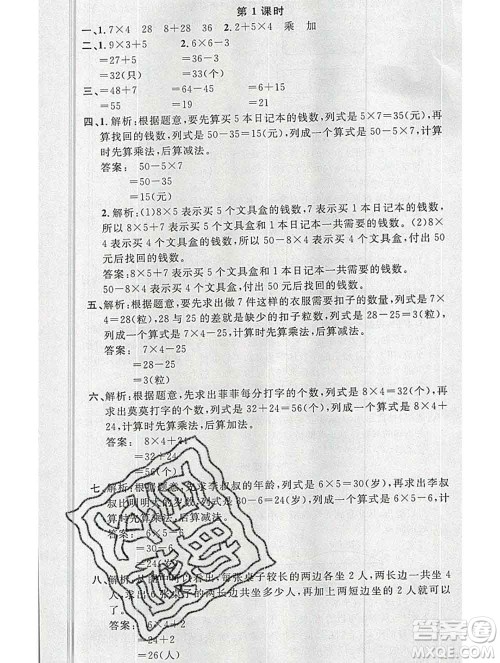 第1课时
一、1. 7×4 28 8 36 2. 2+5×4 乘 加
二、1. 9×3+5 2. 6×6-3
=27+5 =36-3
=32(只) =33(个)
三、=48+7 =64-45 =6+15
=55 =19 =21
四、1. 解析:根据题意,要先算买5本日记本的钱数,列式是5×7=35(元),再
算找回的钱数,列式是50-35=15(元),列成一个算式是50-5×7,计算
时先算乘法,后算减法。
答案: 50-5×7
=50-35
=15(元)
2. 解析:(1)8×5表示买5个文具盒的钱数,7表示买1本日记本的钱数,所
以8×5+7表示买5个文具盒和1本日记本一共需要的钱数。(2)8×4
表示买4个文具盒的钱数,所以50-8×4表示买4个文具盒,付出50
元后找回的钱数。
答案:8×5+7表示买5个文具盒和1本日记本一共需要的钱数。
50-8×4表示买4个文具盒,付出50元后找回的钱数。
五、解析:根据题意,要先求出做7件这样的衣服需要扣子的数量,列式是7×
4=28(粒),28与25的差就是缺少的扣子粒数,列式是28-25=3(粒),
列成一个算式是7×4-25,计算时先算乘法,后算减法。
答案: 7×4-25
=28-25
=3(粒)
六、解析:根据题意,先求出菲菲每分打字的个数,列式是8×4=32(个),再
求出莫莫打字的个数,列式是32+24=56(个),列成一个算式是8×4+
24,计算时先算乘法,后算加法。
答案: 8×4+24
=32+24
=56(个)
七、解析:根据题意,先求出李叔叔的年龄,列式是6×5=30(岁),再求出李叔
叔比明明大的岁数,列式是30-6=24(岁),列成一个算式是6×5-6,计
算时先算乘法,后算减法。
答案: 6×5-6
=30-6
=24(岁)
八、解析:从图中可以看出,每张桌子较长的两边各坐2人,每张桌子就坐4
人,6张桌子一共坐6×4=24(人),再加上两短边坐的2人就可以了。
答案: 6×4+2
=24+2
=26(人)